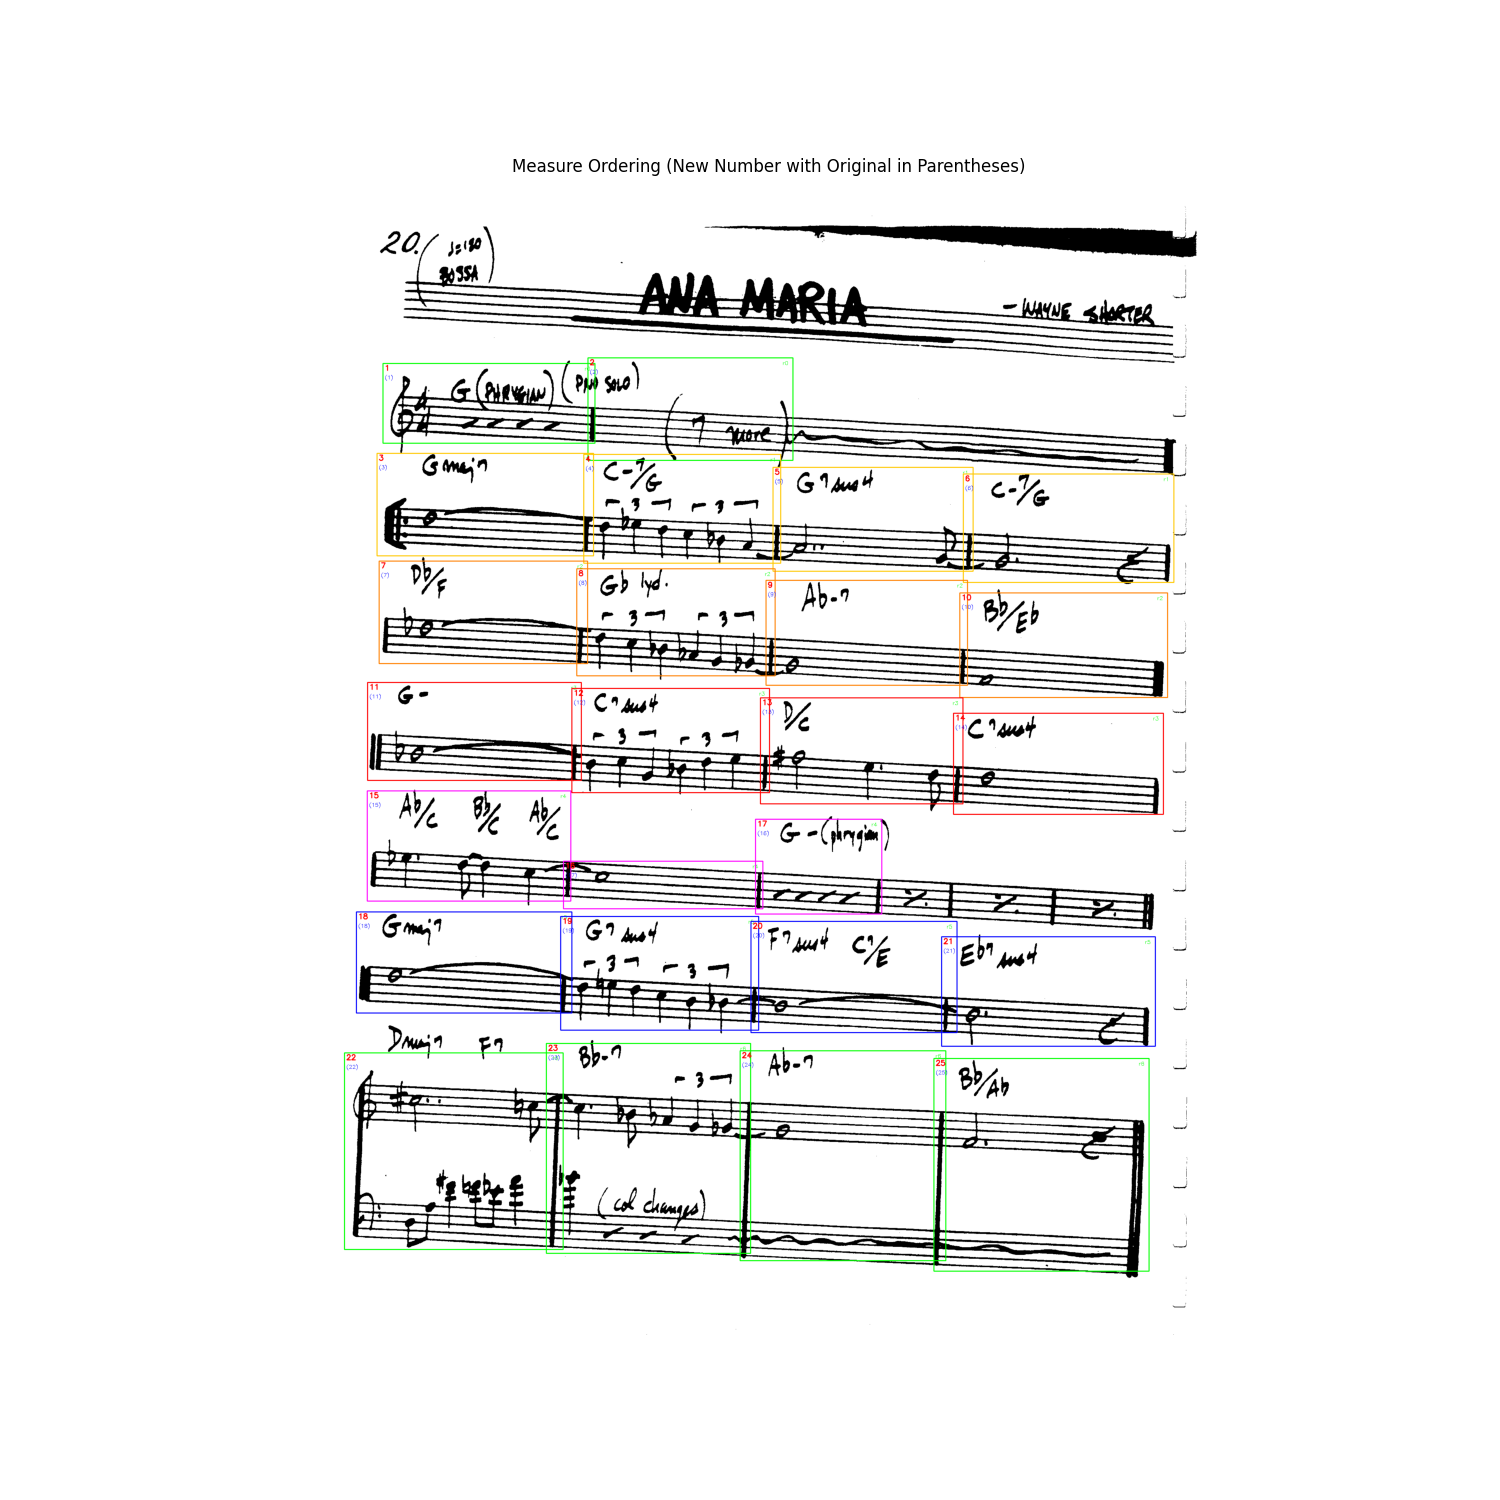 Measure Ordering (New Number with Original in Parentheses)
20. (♩=180 BOSSA)
ANA MARIA
- WAYNE SHORTER
1 (1) G (PHRYGIAN) 2 (PNO SOLO)
(7 more)
3 (3) Gmaj7 4 (4) C-7/G 5 (5) G7sus4 6 (6) C-7/G
3 3
7 (7) Db/F 8 (8) Gb lyd. 9 (9) Ab-7 10 (10) Bb/Eb
3 3
11 (11) G- 12 (12) C7sus4 13 (13) D/C 14 (14) C7sus4
3 3
15 (15) Ab/C Bb/C Ab/C 17 (16) G-(phrygian)
18 (18) Gmaj7 19 (19) G7sus4 20 (20) F7sus4 C7/E 21 (21) Eb7sus4
3 3
Dmaj7 F7
22 (22) 23 (23) Bb-7 24 (24) Ab-7 25 (25) Bb/Ab
3
(col changes)